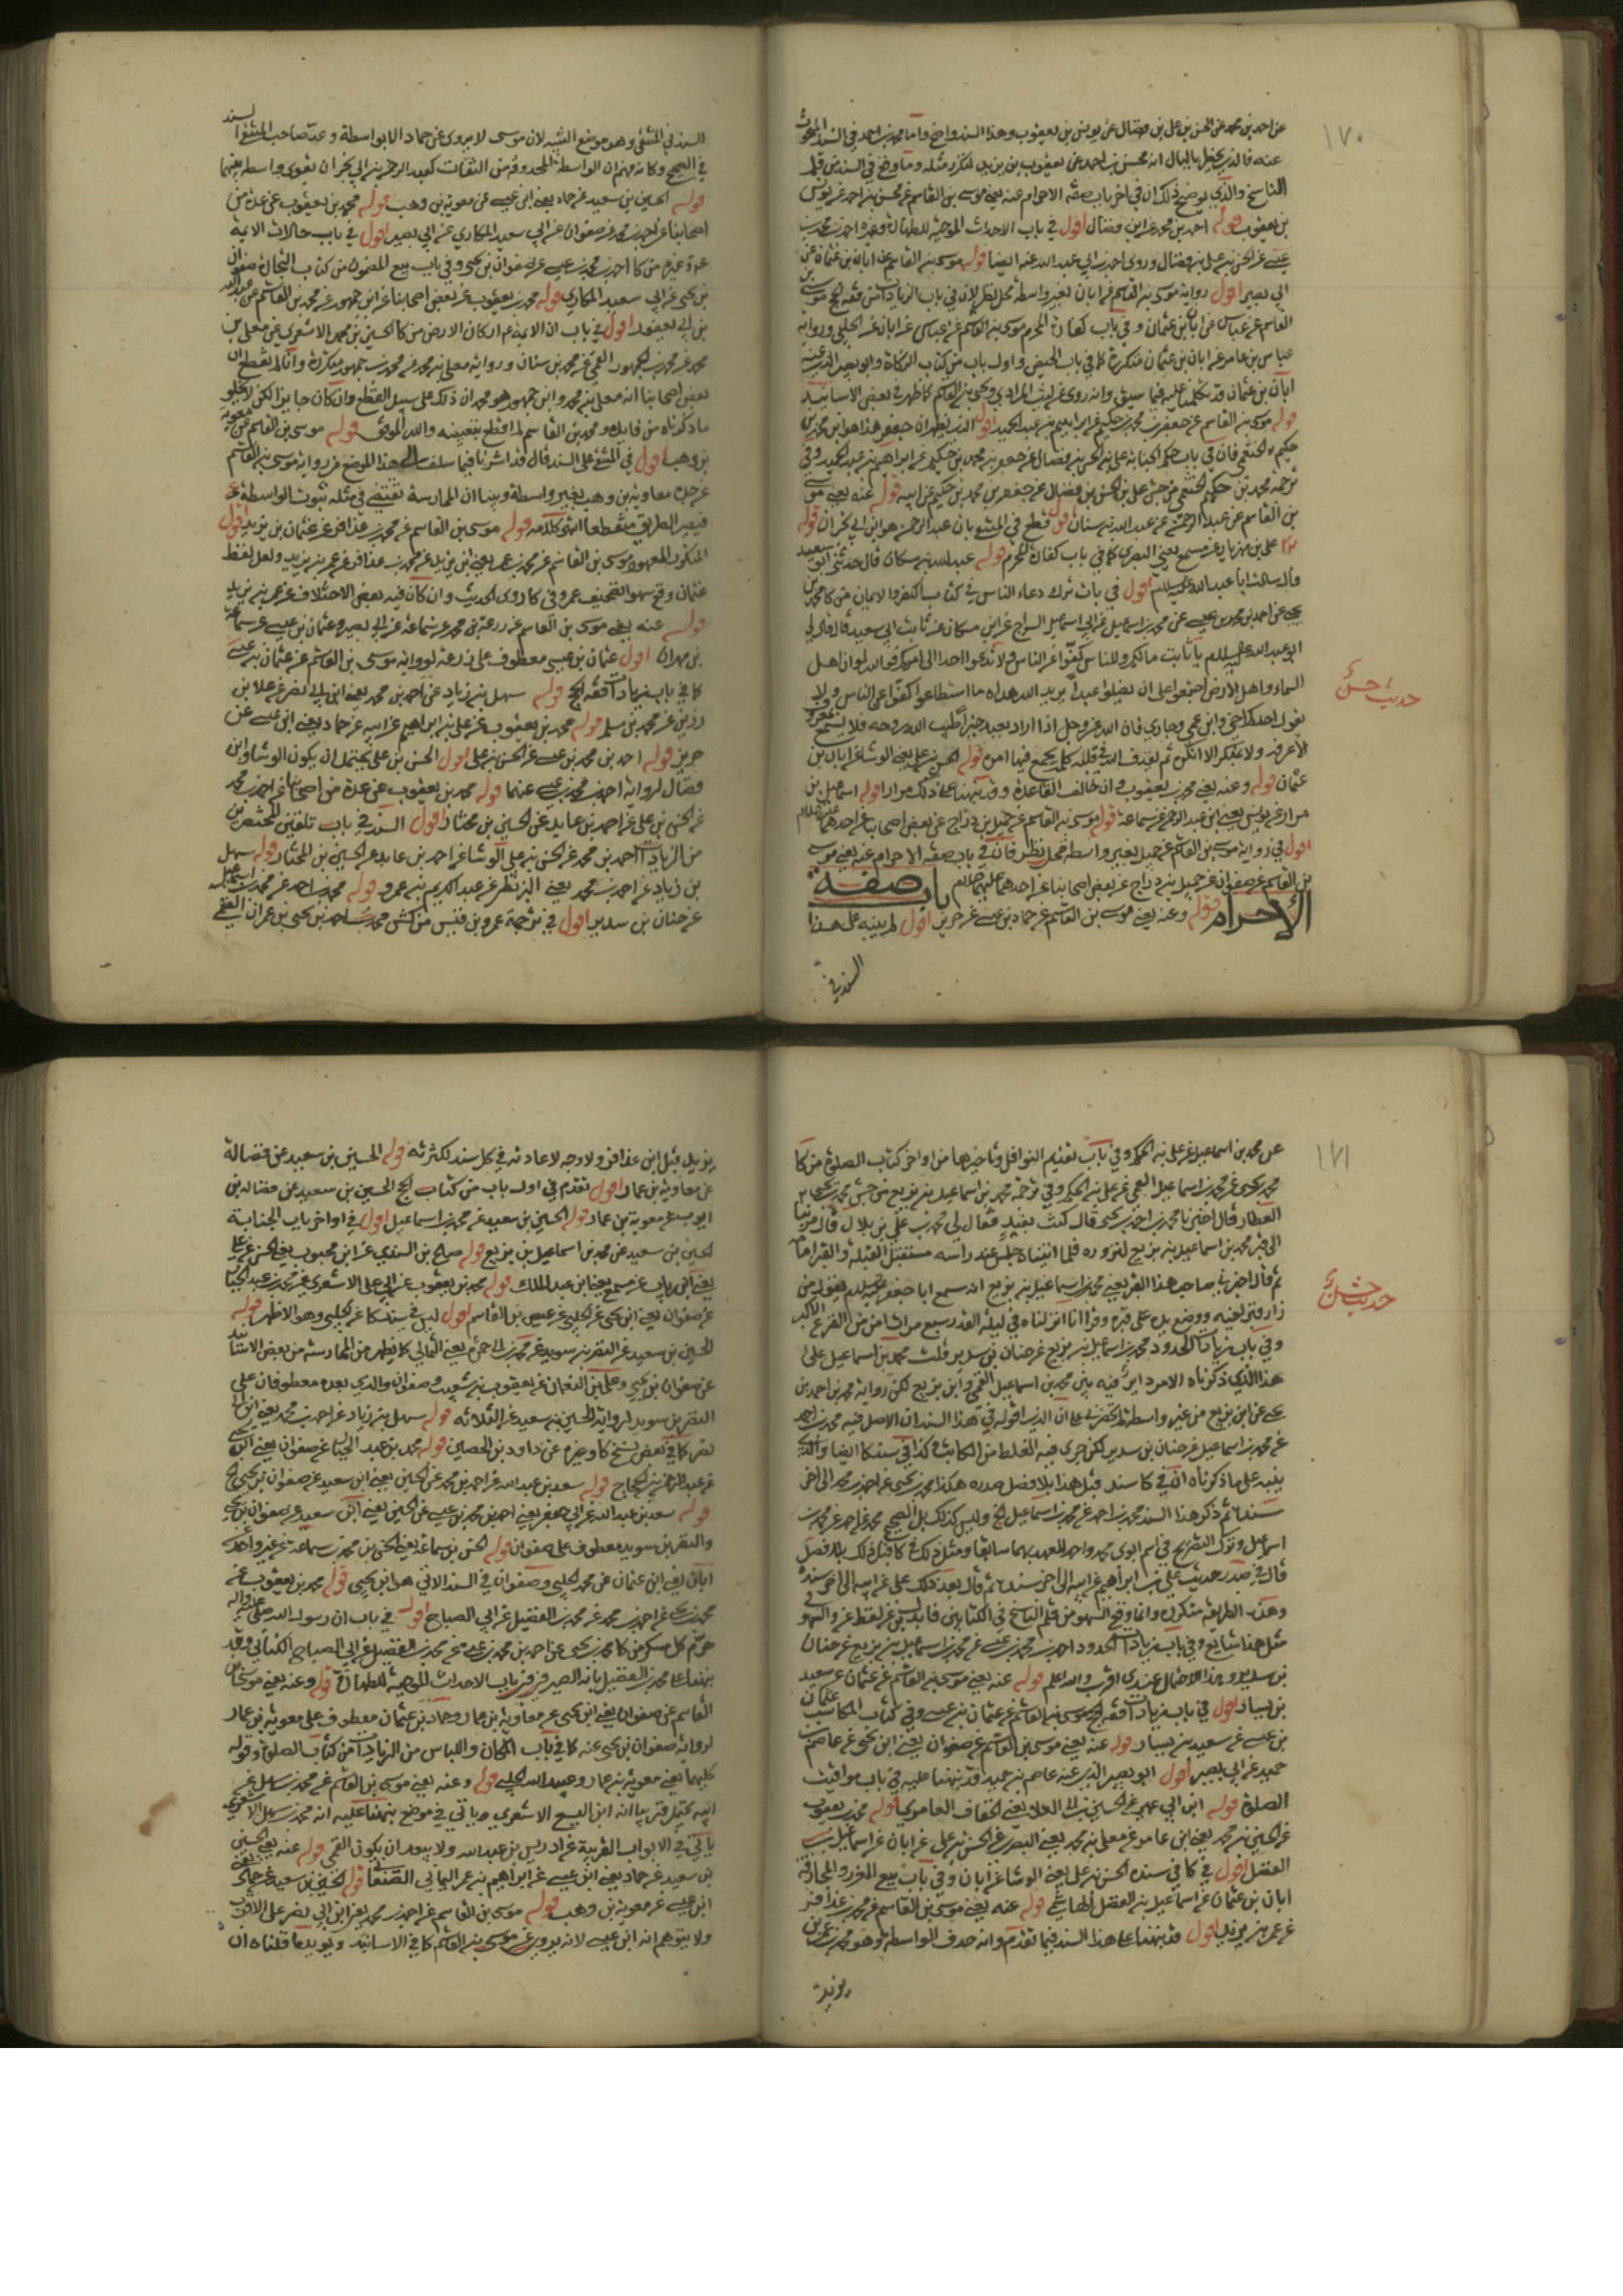 ١٧٠
عن احمد بن محمد عن الحسن بن علي بن فضال عن يونس بن يعقوب وهذا السند واضح واما محمد بن احمد في السند
عنه فالذي يخيل بالبال انه محسن بن احمد عن يعقوب
الناسخ والذي يوضح ذلك ان في اخر باب صفة الاحرام عنه يعني موسى بن القاسم عن محسن بن احمد عن يونس
بن يعقوب قوله احمد بن محمد عن ابن فضال اقول في باب الاحداث الموجبة للطهارة
عيسى عن الحسن بن علي بن فضال وروى احمد بن ابي عبد الله عنه ايضا قوله موسى بن القاسم عن ابان بن عثمان عن
ابي بصير اقول رواية موسى بن القاسم عن ابان بغير واسطة محل نظر لان في باب الزيادات من فقه الحج موسى بن
القاسم عن عباس عن ابان بن عثمان وفي باب كفارة المحرم موسى بن القاسم عن عباس عن ابان عن الحلبي ورواية
عباس بن عامر عن ابان بن عثمان متكررة كما في باب الحيض واول باب من كتاب الزكاة وابو بصير الذي عنه
ابان بن عثمان قد تكلمنا عليه فيما سبق وانه روى عن ليث المرادي ويحيى بن القاسم كما ظهر في بعض الاسانيد
قوله موسى بن القاسم عن جعفر بن محمد بن حكيم عن ابراهيم بن عبد الحميد اقول الذي يظهر ان جعفر هذا هو ابن محمد بن
حكيم الخثعمي فان في باب حكم الجنابة علي بن الحسن بن فضال عن جعفر بن محمد بن حكيم عن ابراهيم بن عبد الحميد وفي
ترجمة محمد بن حكيم الخثعمي من جش علي بن الحسن بن فضال عن جعفر بن محمد بن حكيم عن ابيه قوله عنه يعني موسى
بن القاسم عن عبد الرحمن عن عبد الله بن سنان اقول قطع في المنتقى بان عبد الرحمن هو ابن ابي نجران قوله
علي بن مهزيار عن مسمع يعني البصري كما في باب كفارة المحرم قوله عبد الله بن مسكان قال حدثني
قال سالت ابا عبد الله عليه السلم اقول في باب ترك دعاء الناس في كتاب الكفر والايمان من كا محمد بن
يحيى عن احمد بن محمد بن عيسى عن محمد بن اسماعيل عن ابي اسماعيل السراج عن ابن مسكان عن ثابت ابي سعيد قال قال لي
ابو عبد الله عليه السلم يا ثابت ما لكم وللناس كفوا عن الناس ولا تدعوا احدا الى امركم فوالله لو ان اهل
السماء واهل الارض اجتمعوا على ان يضلوا عبدا يريد الله هداه ما استطاعوا كفوا عن الناس ولا
يقول احدكم اخي وابن عمي وجاري فان الله عز وجل اذا اراد بعبد خيرا طيب الله روحه فلا يسمع بمعروف
الا عرفه ولا بمنكر الا انكره ثم يقذف الله في قلبه كلمة يجمع فيها امره قوله الحسن بن علي يعني الوشا عن ابان بن
عثمان قوله وعنه يعني محمد بن يعقوب وان خالف القاعدة وقد نبهنا على ذلك مرارا قوله اسماعيل بن
مرار عن يونس يعني ابن عبد الرحمن عن سماعة قوله موسى بن القاسم عن جميل بن دراج عن بعض اصحابنا عن احدهما عليهما السلام
اقول في رواية موسى بن القاسم عن جميل بغير واسطة محل نظر فان في باب صفة الاحرام عنه يعني موسى
بن القاسم عن صفوان عن جميل بن دراج عن بعض اصحابنا عن احدهما عليهما السلام باب صفة
الاحرام قوله وعنه يعني موسى بن القاسم عن حماد بن عيسى عن حريز اقول لم ينبه على هذا
السند في
حديث حسن
السند في المنتقى وهو موضع التنبيه لان موسى لا يروي عن حماد الا بواسطة وعده صاحب المنتقى
في الصحيح وكانه فهم ان الواسطة المحذوفة من الثقات كعبد الرحمن بن ابي نجران يقوي واسطة بينهما
قوله الحسين بن سعيد عن حماد يعني ابن عيسى عن معوية بن وهب قوله محمد بن يعقوب عن عدة من
اصحابنا عن احمد بن محمد عن صفوان عن ابي سعيد المكاري عن ابي بصير اقول في باب حالات الايمة
احمد بن محمد بن عيسى عن صفوان بن يحيى وفي باب بيع المضمون من كتاب التجارة صفوان
بن يحيى عن ابي سعيد المكاري قوله محمد بن يعقوب عن بعض اصحابنا عن ابن جمهور عن محمد بن القاسم عن عبد الله
بن ابي يعفور اقول في باب ان الايمة هم اركان الارض من كا الحسين بن محمد الاشعري عن معلى بن
محمد عن محمد بن جمهور القمي عن محمد بن سنان ورواية معلى بن محمد عن محمد بن جمهور متكررة وانما لم نقطع ان
بعض اصحابنا انه معلى بن محمد وابن جمهور هو محمد ان ذلك على سبيل القطع وان كان جايزا لكن لا يخلو
ما ذكرناه من فايدة ومحمد بن القاسم لم اقطع بتعيينه والله الموفق قوله موسى بن القاسم عن معوية
بن وهب اقول في المنتقى على السند قال قد اشرنا فيما سلف الى هذا الموضع من رواية موسى بن القاسم
عن جده معاوية بن وهب بغير واسطة وبينا ان الممارسة تقتضي في مثله ثبوت الواسطة
فيصير الطريق منقطعا انتهى كلامه قوله موسى بن القاسم عن محمد بن عذافر عن عثمان بن يزيد اقول
المتكرر المعهود موسى بن القاسم عن محمد بن عمر يعني ابن يزيد عن محمد بن عذافر عن عمر بن يزيد ولعل لفظ
عثمان وقع سهوا لتصحيف عمر وفي كا روى الحديث وان كان فيه بعض الاختلاف عن عمر بن يزيد
قوله عنه يعني موسى بن القاسم عن زرعة عن محمد عن سماعة عن ابي بصير وعثمان بن عيسى عن سماعة
بن مهران اقول عثمان بن عيسى معطوف على زرعة لرواية موسى بن القاسم عن عثمان بن عيسى
كما في باب زيادات فقه الحج قوله سهل بن زياد عن احمد بن محمد يعني ابن ابي نصر عن علا بن
رزين عن محمد بن مسلم قوله محمد بن يعقوب عن علي بن ابراهيم عن ابيه عن حماد يعني ابن عيسى عن
حريز قوله احمد بن محمد بن عيسى عن الحسن بن علي اقول الحسن بن علي يحتمل ان يكون الوشا وابن
فضال لرواية احمد بن محمد بن عيسى عنهما قوله محمد بن يعقوب عن عدة من اصحابنا عن احمد بن محمد
عن الحسن بن علي عن احمد بن عايذ عن الحسين بن مختار اقول السند في باب تلقين المحتضرين
من الزيادات احمد بن محمد عن الحسن بن علي الوشا عن احمد بن عايذ عن الحسين بن المختار قوله سهل
بن زياد عن احمد بن محمد يعني البزنطي عن عبد الكريم بن عمرو قوله محمد بن احمد عن محمد بن اسماعيل
عن حنان بن سدير اقول في ترجمة عمرو بن قيس من كش محمد بن احمد بن يحيى بن عمران القمي
١٧١
عن محمد بن اسماعيل عن علي بن الحكم وفي باب تقديم النوافل وتاخيرها من اواخر كتاب الصلوة من كا
محمد بن يحيى عن محمد بن اسماعيل القمي عن علي بن الحكم وفي ترجمة محمد بن اسماعيل بن بزيع من جش محمد بن يحيى
العطار قال اخبرنا محمد بن احمد بن يحيى قال كنت بفيد فقال لي محمد بن علي بن بلال قال مر بنا
الى قبر محمد بن اسماعيل بن بزيع لنزوره فلما اتيناه جلس عند راسه مستقبل القبلة والقبر امامه
ثم قال اخبرني صاحب هذا القبر يعني محمد بن اسماعيل بن بزيع انه سمع ابا جعفر عليه السلم يقول من
زار قبر اخيه ووضع يده على قبره وقرا انا انزلناه في ليلة القدر سبع مرات امن من الفزع الاكبر
وفي باب زيادات الحدود محمد بن اسماعيل بن بزيع عن حنان بن سدير قلت محمد بن اسماعيل على
هذا الذي ذكرناه الامر داير فيه بين محمد بن اسماعيل القمي وابن بزيع لكن رواية محمد بن احمد بن
يحيى عن ابن بزيع من غير واسطة على ان الذي اقوله في هذا السند ان الاصل فيه محمد بن احمد
عن محمد بن اسماعيل عن حنان بن سدير لكن جرى فيه الغلط من الكاتب وكذا في سند كا ايضا والذي
ينبه على ما ذكرناه ان في كا سند قبل هذا بلا فصل صدره هكذا محمد بن يحيى عن احمد بن محمد الى اخر
سنده ثم ذكر هذا السند محمد بن احمد عن محمد بن اسماعيل الخ وليس كذلك بل الصحيح محمد عن احمد عن محمد بن
اسماعيل وترك التصريح في اسم ابوي محمد واحمد للعهد بهما سابقا ومثل ذلك كا قبل ذلك بلا فصل
قال في صدر حديث علي بن ابراهيم عن ابيه الى اخر سنده ثم قال بعد ذلك علي عن ابيه الى اخر سنده
وهذه الطريقة متكررة وانما وقع السهو من قلم الناسخ في الكتابين والسهو في
مثل هذا شايع وفي باب زيادات الحدود احمد بن محمد بن عيسى عن محمد بن اسماعيل بن بزيع عن حنان
بن سدير وهذا الاحتمال عندي اقرب والله اعلم قوله عنه يعني موسى بن القاسم عن عثمان عن سعيد
بن يسار اقول في باب زيادات فقه الحج موسى بن القاسم عن عثمان بن عيسى وفي كتاب المكاسب عثمان
بن عيسى عن سعيد بن يسار قوله عنه يعني موسى بن القاسم عن صفوان يعني ابن يحيى عن عاصم بن
حميد عن ابي بصير اقول ابو بصير الذي عنه عاصم بن حميد قد نبهنا عليه في باب مواقيت
الصلوة قوله ابن ابي عمير عن الحسين بن ابي العلا يعني الخفاف العامري قوله محمد بن يعقوب
عن الحسين بن محمد يعني ابن عامر عن معلى بن محمد يعني البصري عن الحسن بن علي عن ابان عن اسماعيل بن
الفضل اقول في كا في سنده الحسن بن علي يعني الوشا عن ابان وفي باب بيع الغرر والمجازفة
ابان بن عثمان عن اسماعيل بن الفضل الهاشمي قوله عنه يعني موسى بن القاسم عن محمد بن عذافر
عن عمر بن يزيد اقول قد نبهنا على هذا السند فيما تقدم وانه حذف الواسطة وهو محمد بن عمر بن
يزيد
حديث حسن
يزيد قبل ابن عذافر ولا وجه لاعادته في كل سند لكثرته قوله الحسين بن سعيد عن فضالة
عن معاوية بن عمار اقول تقدم في اول باب من كتاب الحج الحسين بن سعيد عن فضالة بن
ايوب عن معوية بن عمار قوله الحسين بن سعيد عن محمد بن اسماعيل اقول في اواخر باب الجنابة
الحسين بن سعيد عن محمد بن اسماعيل بن بزيع قوله صالح بن السندي عن ابن محبوب يعني الحسن عن علي
يعني ابن رياب عن مسمع يعني ابن عبد الملك قوله محمد بن يعقوب عن ابي علي الاشعري عن محمد بن عبد الجبار
عن صفوان يعني ابن يحيى عن الحلبي عن عيص بن القاسم اقول ليس في سند كا عن الحلبي وهو الاظهر قوله
الحسين بن سعيد عن النضر بن سويد عن محمد بن ابي حمزة يعني الثمالي كما يظهر من الممارسة من بعض الاسناد
عن صفوان بن يحيى وعلي بن النعمان عن يعقوب بن شعيب وصفوان والذي بعده معطوفان على
النضر بن سويد لرواية الحسين بن سعيد عن الثلاثة قوله سهل بن زياد عن احمد بن محمد يعني ابن ابي
نصر كما في بعض نسخ كا وغيره عن داود بن الحصين قوله محمد بن عبد الجبار عن صفوان يعني ابن يحيى
عن عبد الرحمن بن الحجاج قوله سعد بن عبد الله عن احمد بن محمد عن الحسين يعني ابن سعيد عن صفوان بن يحيى الخ
قوله سعد بن عبد الله عن ابي جعفر يعني احمد بن محمد بن عيسى عن الحسين يعني ابن سعيد عن صفوان بن يحيى
والنضر بن سويد معطوف على صفوان قوله الحسن بن سماعة يعني الحسن بن محمد بن سماعة عن غير واحد عن
ابان يعني ابن عثمان عن محمد الحلبي وصفوان في السند الاتي هو ابن يحيى قوله محمد بن يعقوب عن
محمد بن يحيى عن احمد بن محمد عن محمد بن الفضيل عن ابي الصباح اقول في باب ان رسول الله صلى الله عليه واله
حرم كل مسكر من كا محمد بن يحيى عن احمد بن محمد بن عيسى عن محمد بن الفضيل عن ابي الصباح الكناني وقد
نبهنا على محمد بن الفضيل بانه الصيرفي في باب الاحداث الموجبة للطهارة قوله وعنه يعني موسى بن
القاسم عن صفوان يعني ابن يحيى عن معاوية بن عمار وحماد بن عثمان معطوف على معوية بن عمار
لرواية صفوان بن يحيى عنه كما في باب المكان واللباس من الزيادات من كتاب الصلوة وقوله
كليهما يعني معوية بن عمار وعبيد الله الحلبي قوله وعنه يعني موسى بن القاسم عن محمد بن سهل عن
ابيه يحتمل قريبا انه ابن اليسع الاشعري وياتي في موضع نبهنا عليه انه محمد بن سهل الاشعري
ياتي في الابواب القريبة عن ادريس بن عبد الله ولا يبعد ان يكون القمي قوله عنه يعني الحسين
بن سعيد عن حماد يعني ابن عيسى عن ابراهيم بن عمر اليماني الصنعاني قوله الحسين بن سعيد عن حماد يعني
ابن عيسى عن معوية بن وهب قوله موسى بن القاسم عن احمد بن محمد يعني ابن ابي نصر على الاقرب
ولا يتوهم انه ابن عيسى لانه يروي عن موسى بن القاسم كما في الاسانيد ويويد ما قلناه ان